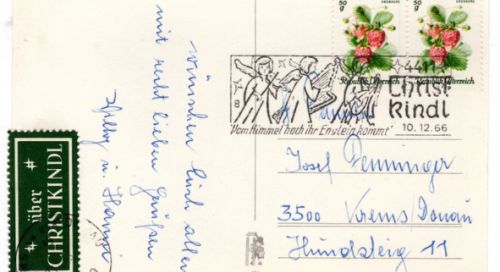 wünschen Euch allen
mit recht lieben Grüßen
in
über
CHRISTKINDL
50
g
50
g
ERDBEERE
Republik Österreich
Republik Österreich
4411
Christ
kindl
10.12.66
8
"Vom Himmel hoch ihr Englein kommt"
Josef
3500 Krems/Donau
Hundsteig 11